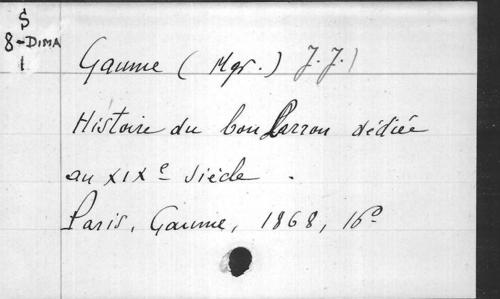 S
8-DIMA
1
Gaume (Mgr.) J. J.)
Histoire du bon Larron dédiée
au XIXe siècle.
Paris, Gaume, 1868, 16°